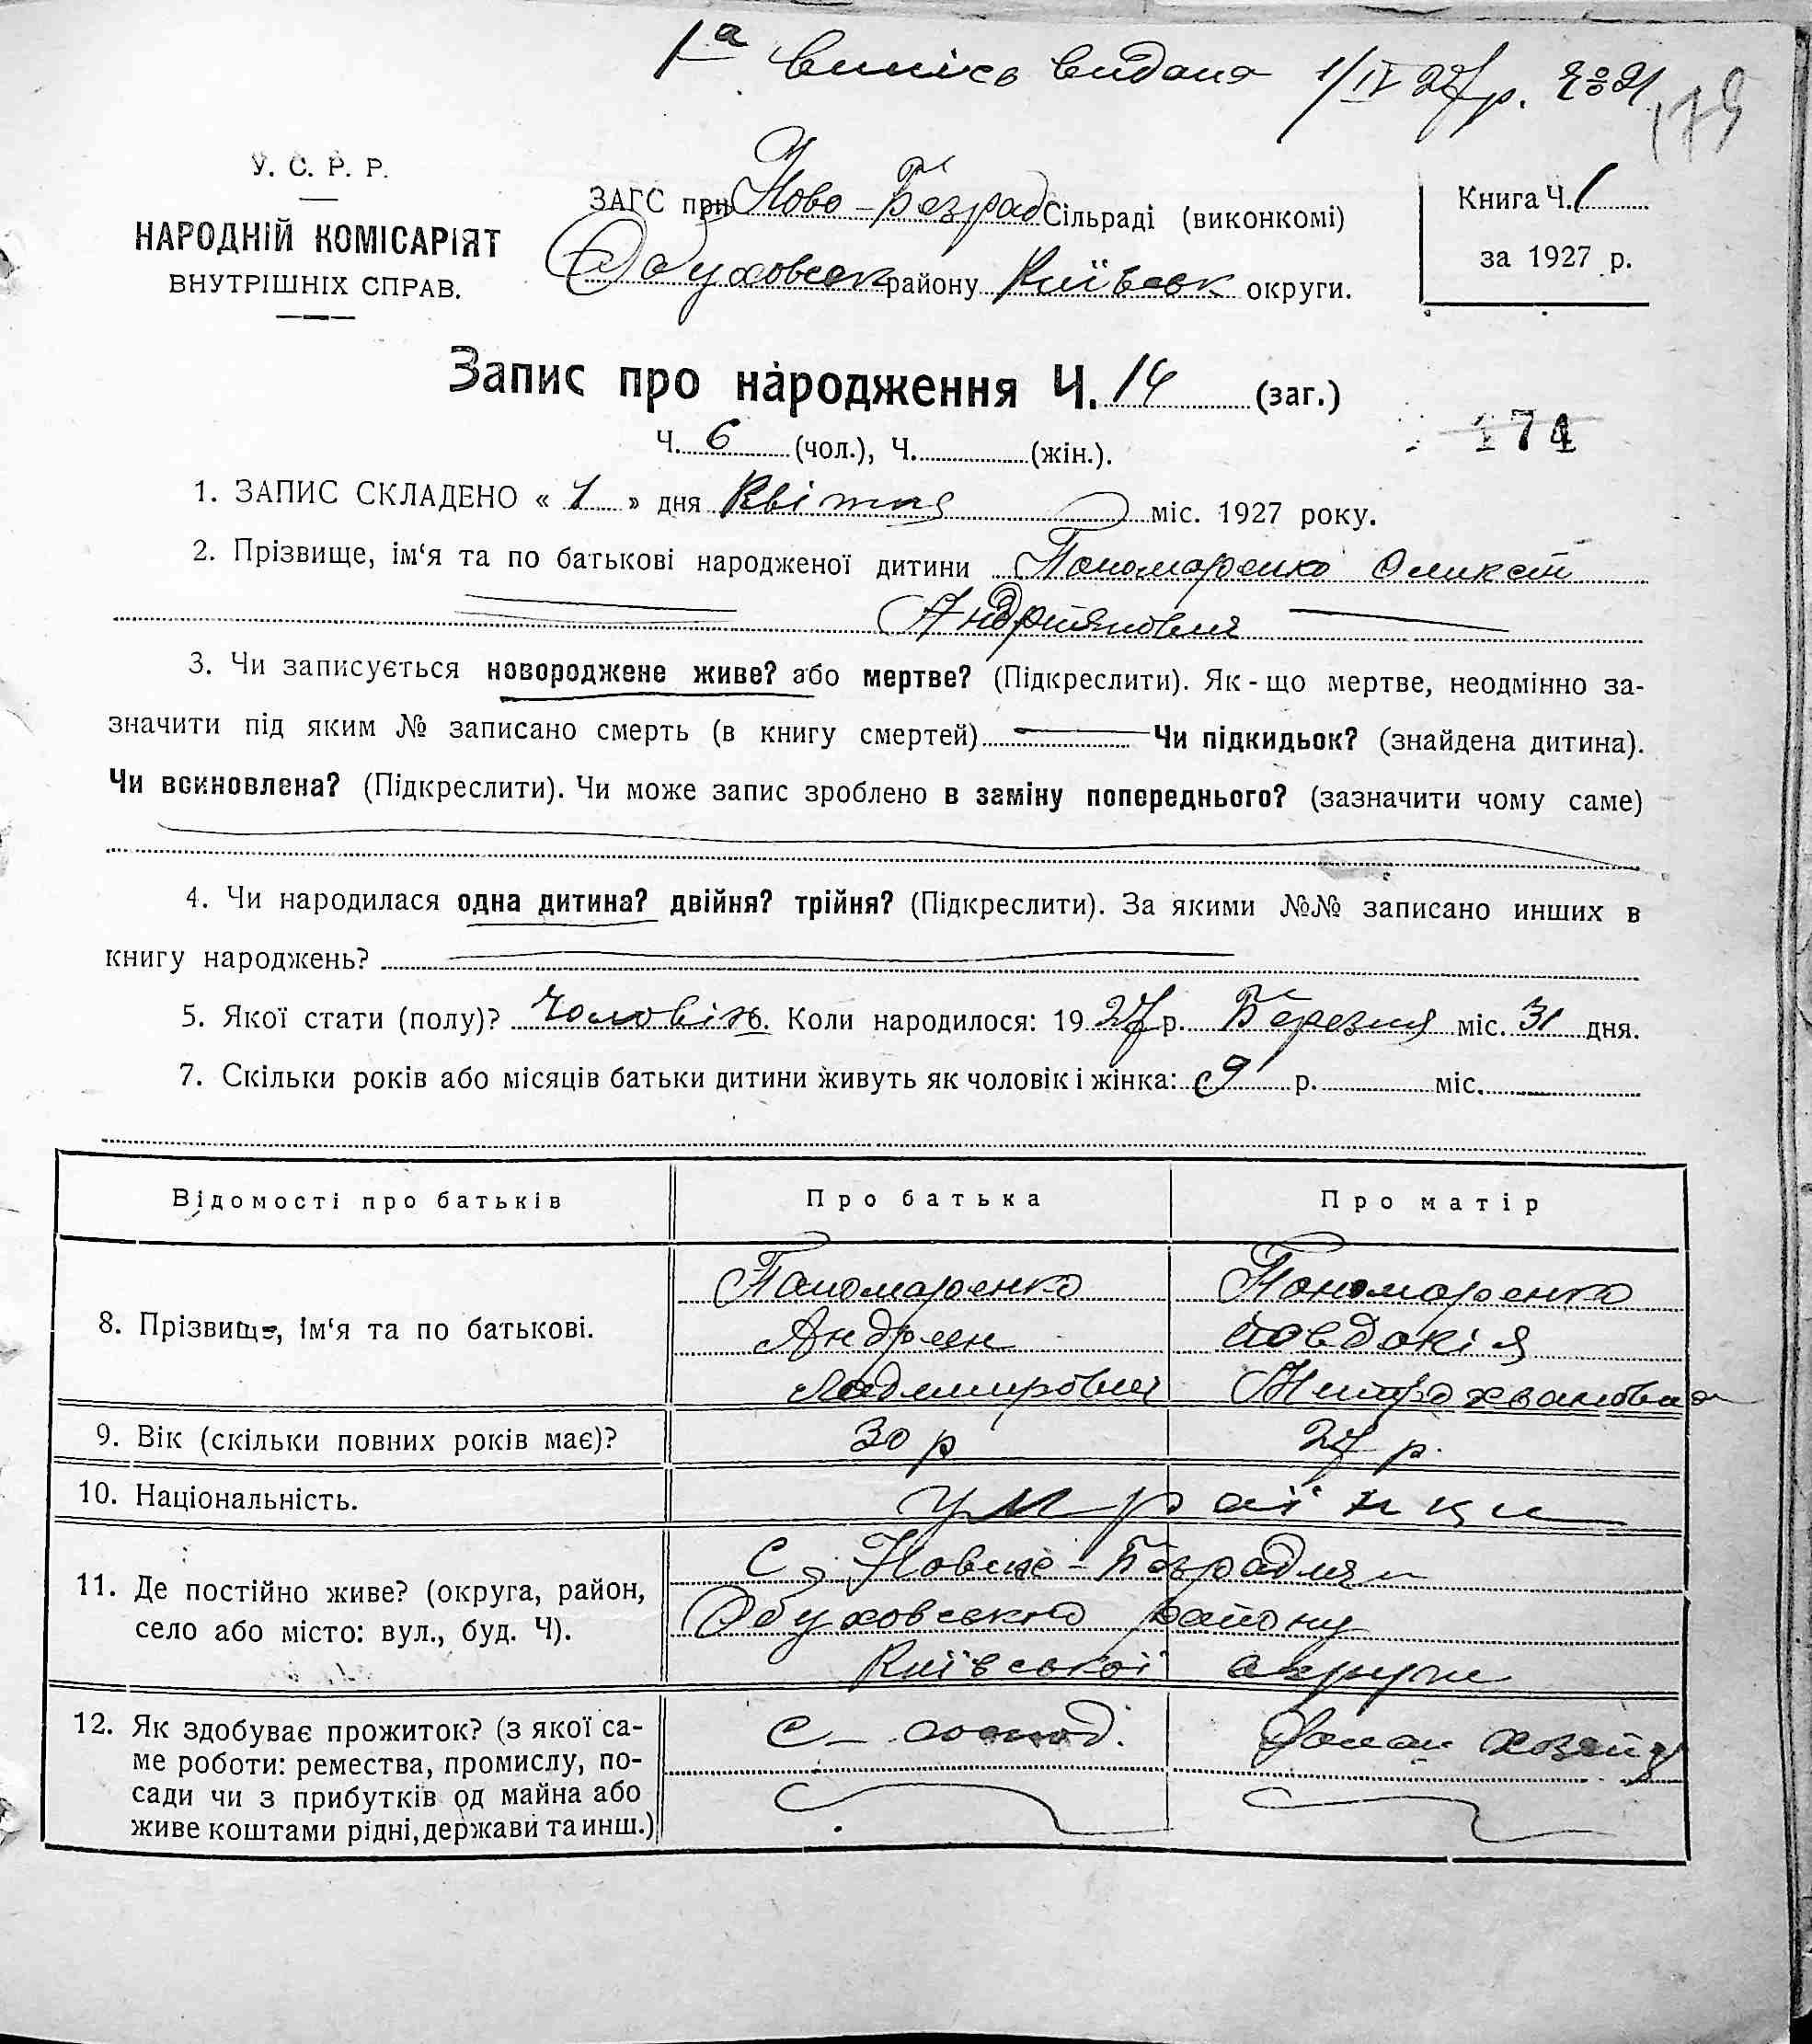 1а випись видана 1/IV 27 р.
175
У. С. Р. Р.
НАРОДНІЙ КОМІСАРІЯТ
ВНУТРІШНІХ СПРАВ.
ЗАГС при Ново-Безрад Сільраді (виконкомі)
Обуховськ району Київськ округи.
Книга Ч. 1
за 1927 р.
Запис про народження Ч. 14 (заг.)
Ч. 6 (чол.), Ч. (жін.).
174
1. ЗАПИС СКЛАДЕНО « 1 » дня Квітня міс. 1927 року.
2. Прізвище, ім‘я та по батькові народженої дитини Пономаренко
Андріянович
3. Чи записується новороджене живе? або мертве? (Підкреслити). Як-що мертве, неодмінно за-
значити під яким № записано смерть (в книгу смертей) Чи підкидьок? (знайдена дитина).
Чи всиновлена? (Підкреслити). Чи може запис зроблено в заміну попереднього? (зазначити чому саме)
4. Чи народилася одна дитина? двійня? трійня? (Підкреслити). За якими №№ записано инших в
книгу народжень?
5. Якої стати (полу)? Чоловіч. Коли народилося: 1927 р. Березня міс. 31 дня.
7. Скільки років або місяців батьки дитини живуть як чоловік і жінка: 9 р. міс.
Відомості про батьків Про батька Про матір
8. Прізвище, ім‘я та по батькові.
Пономаренко Пономаренко
Андриян Йовдокія
Ладимирович Митрохвановна
9. Вік (скільки повних років має)? 30 р 27 р.
10. Національність. українци
11. Де постійно живе? (округа, район,
село або місто: вул., буд. Ч).
С. Нове-Безрадичи
Обуховського району
Київської округи
12. Як здобуває прожиток? (з якої са-
ме роботи: ремества, промислу, по-
сади чи з прибутків од майна або
живе коштами рідні, держави та инш.)
С-господ. Домаш хозяйц